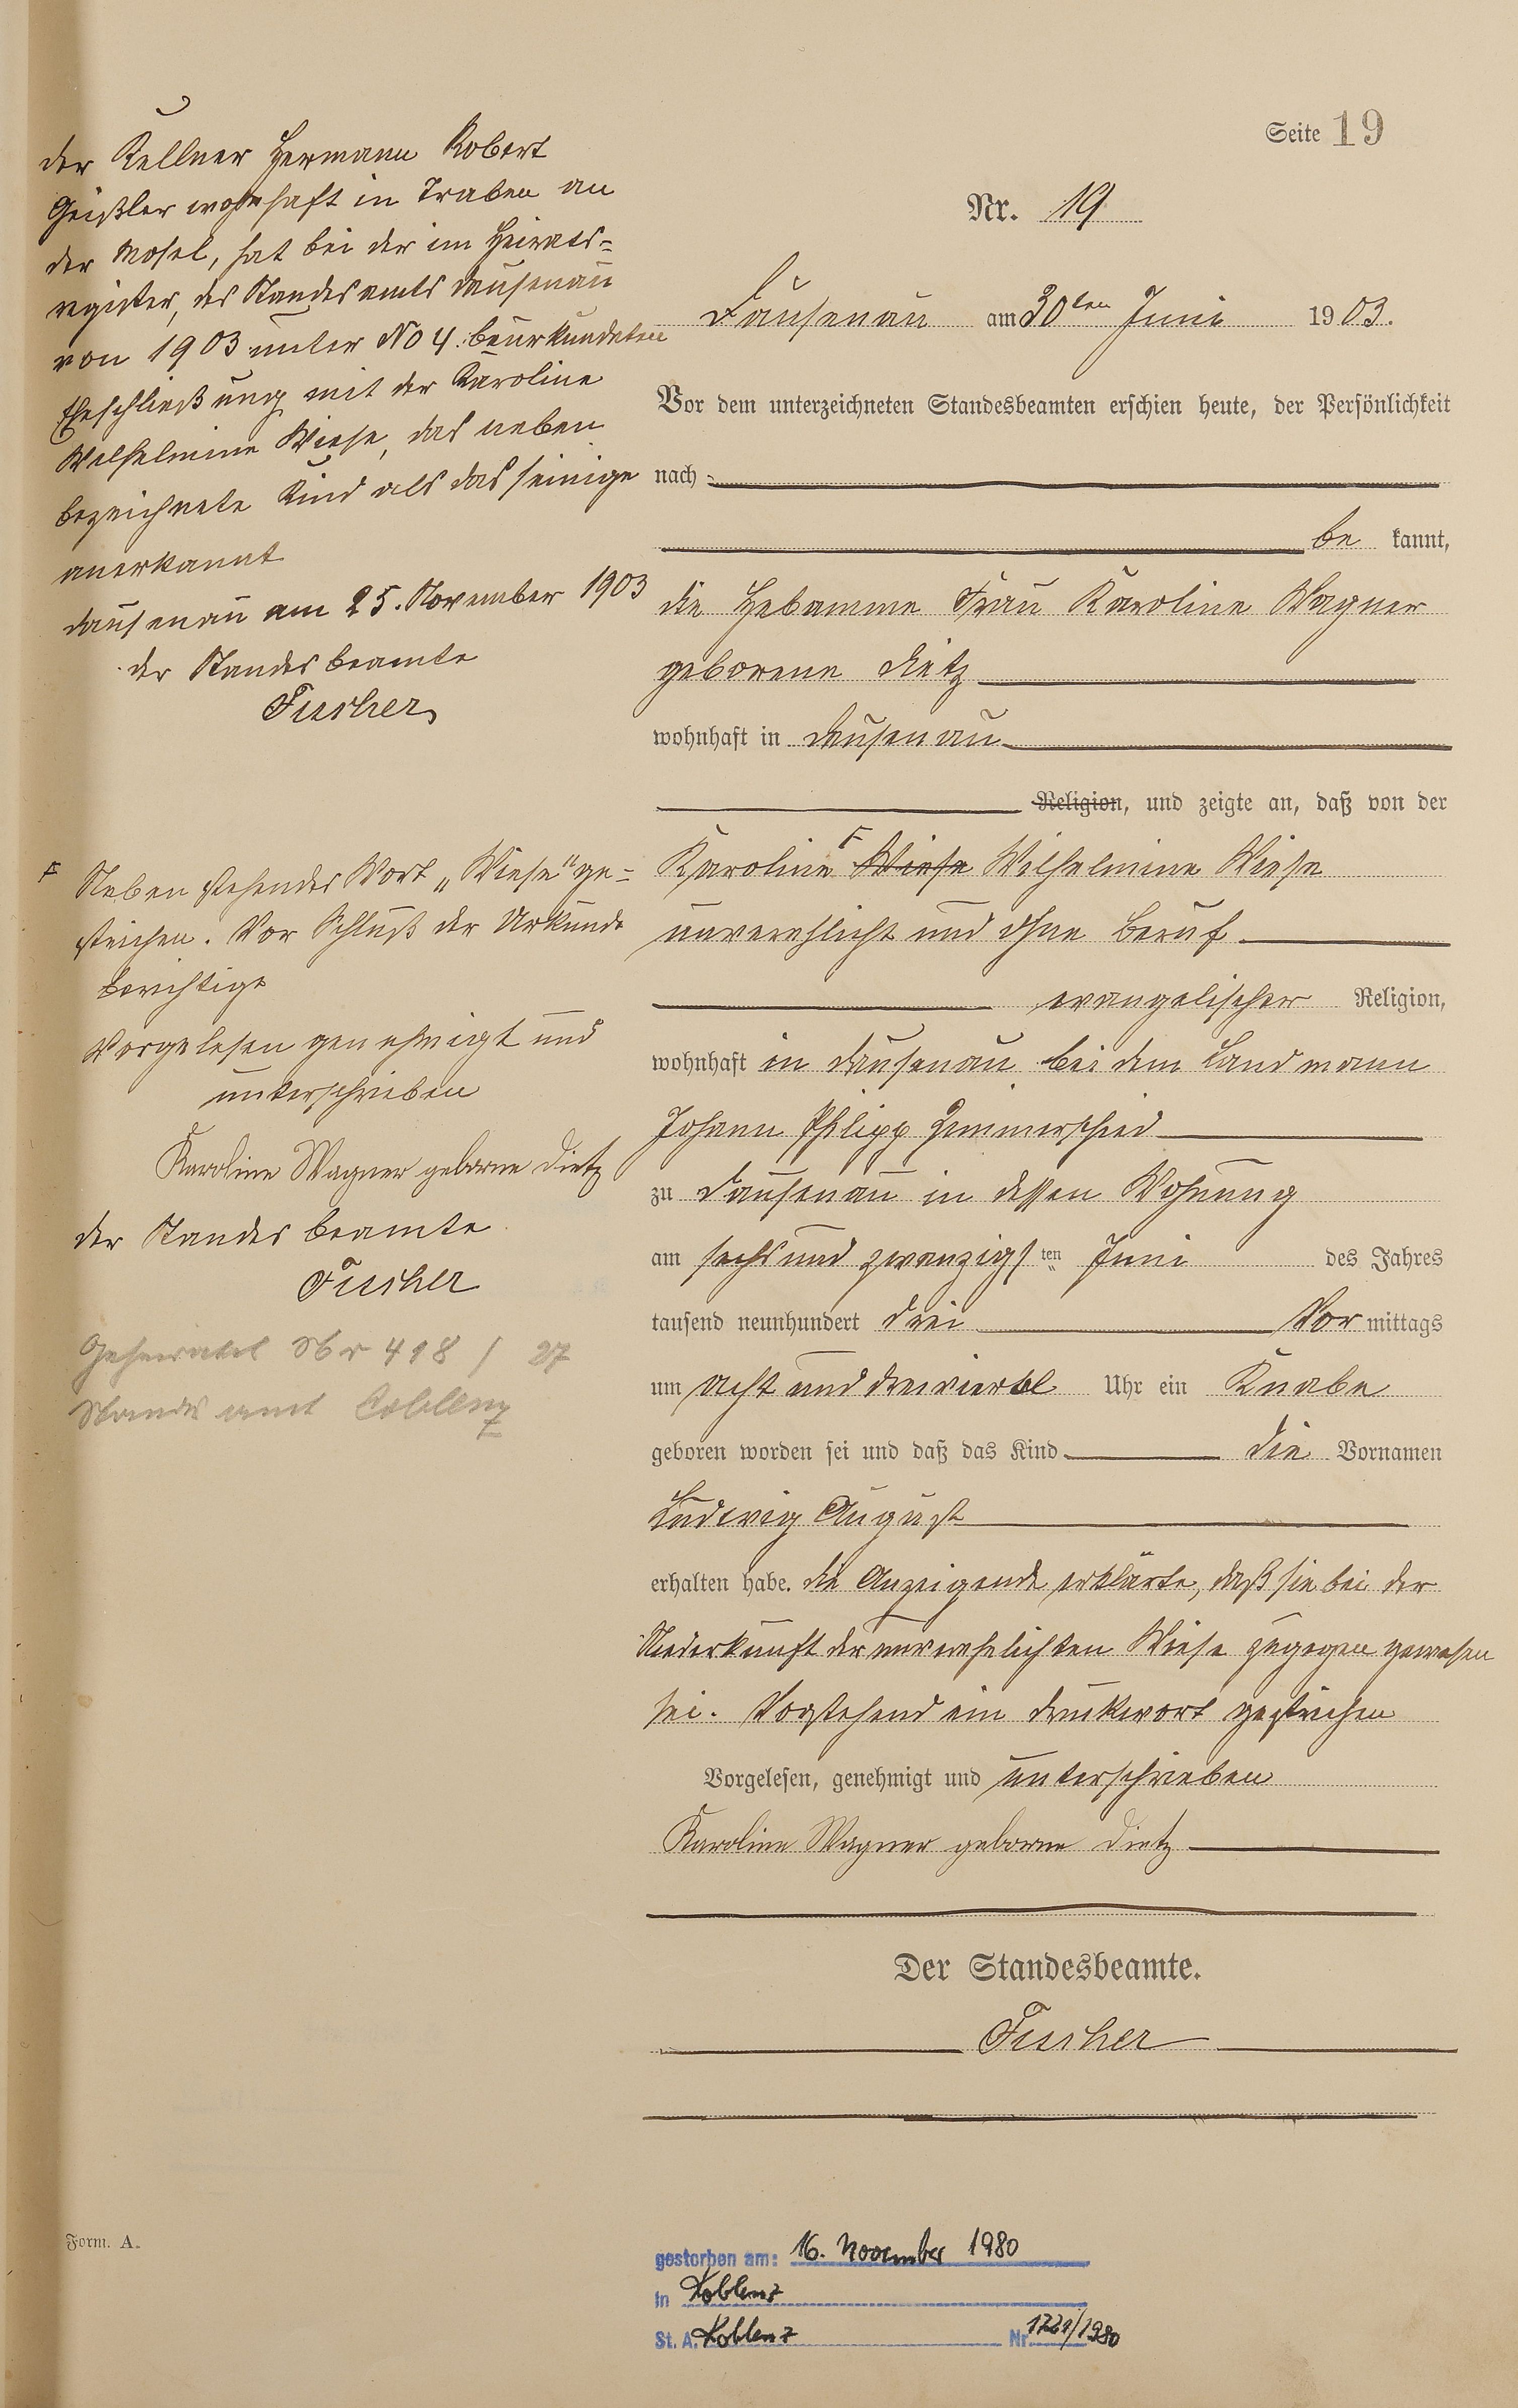 Seite 19
Nr. 19
Dausenau am 30ten Juni 1903.
Vor dem unterzeichneten Standesbeamten erschien heute, der Persönlichkeit
nach
be kannt,
die Hebamme Frau Karoline Wagner
geborene Dietz
wohnhaft in Dausenau
Religion, und zeigte an, daß von der
Karoline F Wiese Wilhelmine Wiese
unverehlicht und ohne Beruf
evangelischer Religion,
wohnhaft in Dausenau bei dem Landmann
Johann Philipp Zimmerschied
zu Dausenau in dessen Wohnung
am sechs und zwanzigsten Juni des Jahres
tausend neunhundert drei Vor mittags
um acht und dreiviertel Uhr ein Knabe
geboren worden sei und daß das Kind die Vornamen
Ludwig August
erhalten habe. Die Anzeigende erklärte, daß sie bei der
Niederkunft der unverehelichten Wiese zugegen gewesen
sei. Vorstehend ein Druckwort gestrichen
Vorgelesen, genehmigt und unterschrieben
Karoline Wagner geborne Dietz
Der Standesbeamte.
Fischer
der Kellner Hermann Robert
Geißler wohnhaft in Traben an
der Mosel, hat bei der im Heirats-
register, des Standesamts Dausenau
von 1903 unter No 4. beurkundeten
Eheschließung mit der Karoline
Wilhelmine Wiese, das neben
bezeichnete Kind als das seinige
anerkannt
Dausenau am 25. November 1903
der Standesbeamte
Fischer
F Nebenstehendes Wort „Wiese" ge-
strichen. Vor Schluß der Urkunde
berichtigt
Vorgelesen genehmigt und
unterschrieben
Karoline Wagner geborne Dietz
der Standesbeamte
Fischer
Geheiratet Nr 418 / 27
Standesamt Coblenz
Form. A.
gestorben am: 16. November 1980
in Koblenz
St. A. Koblenz Nr 1721/1980